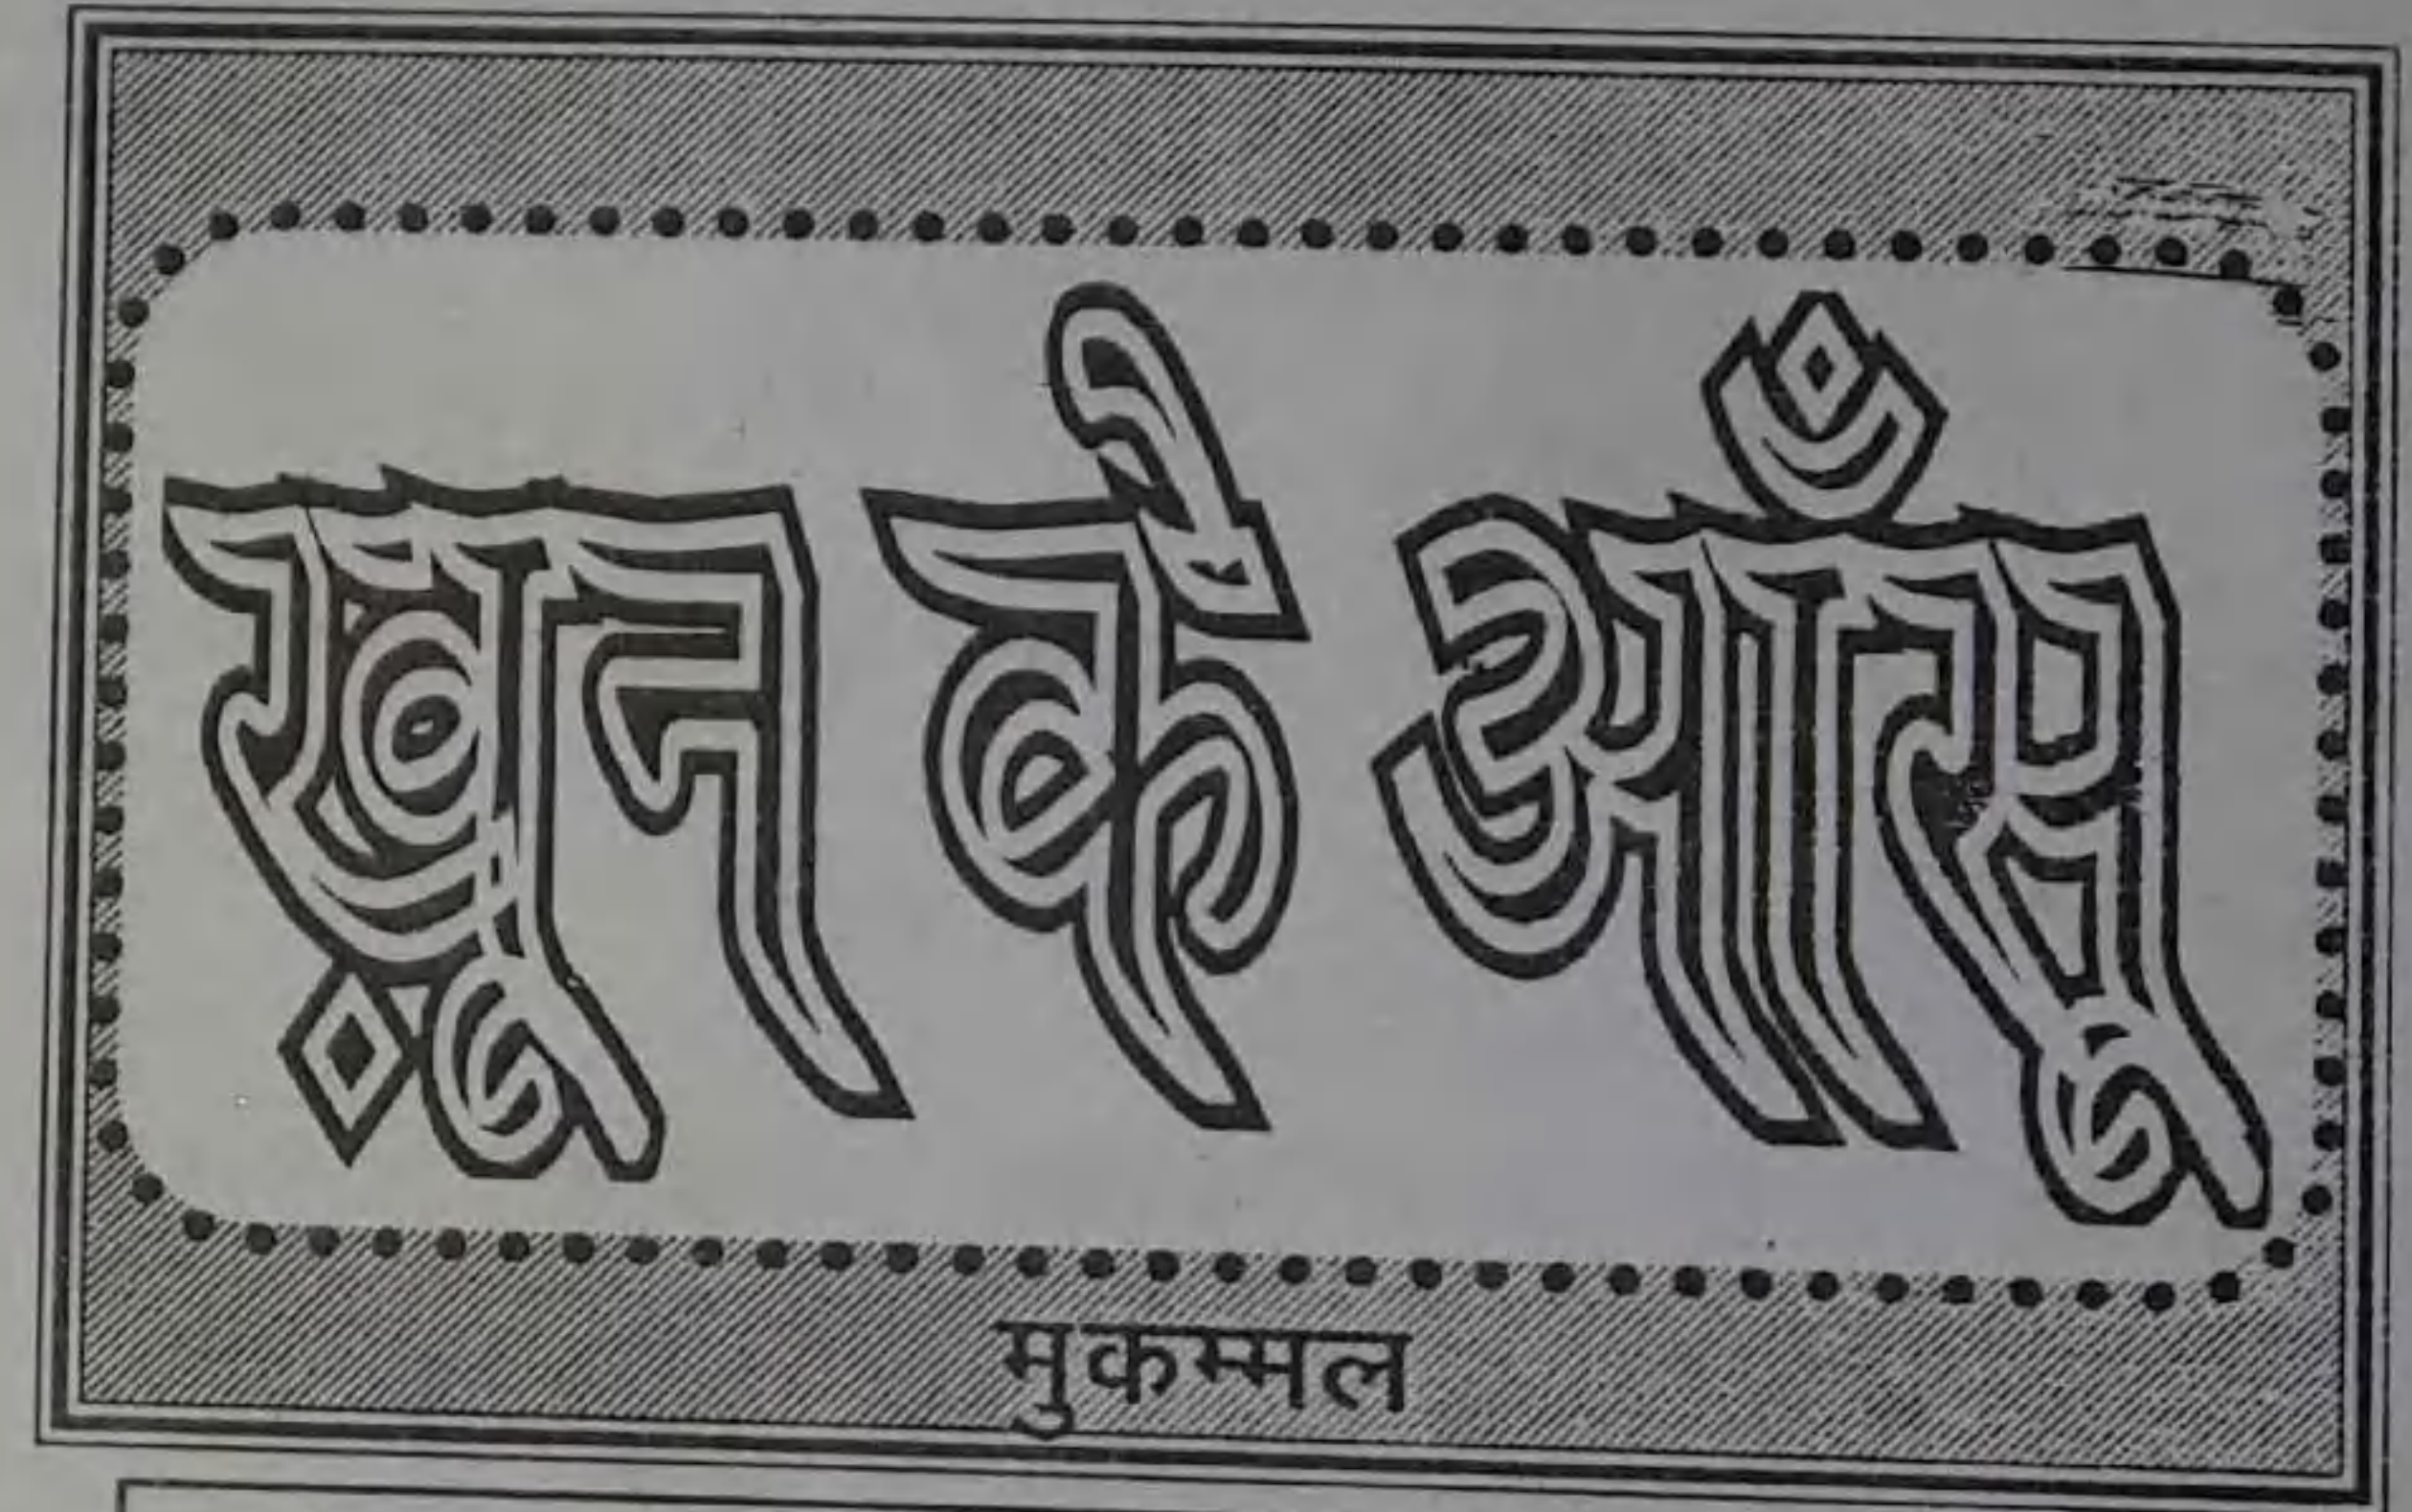 ख़ून के आँसू
मुकम्मल